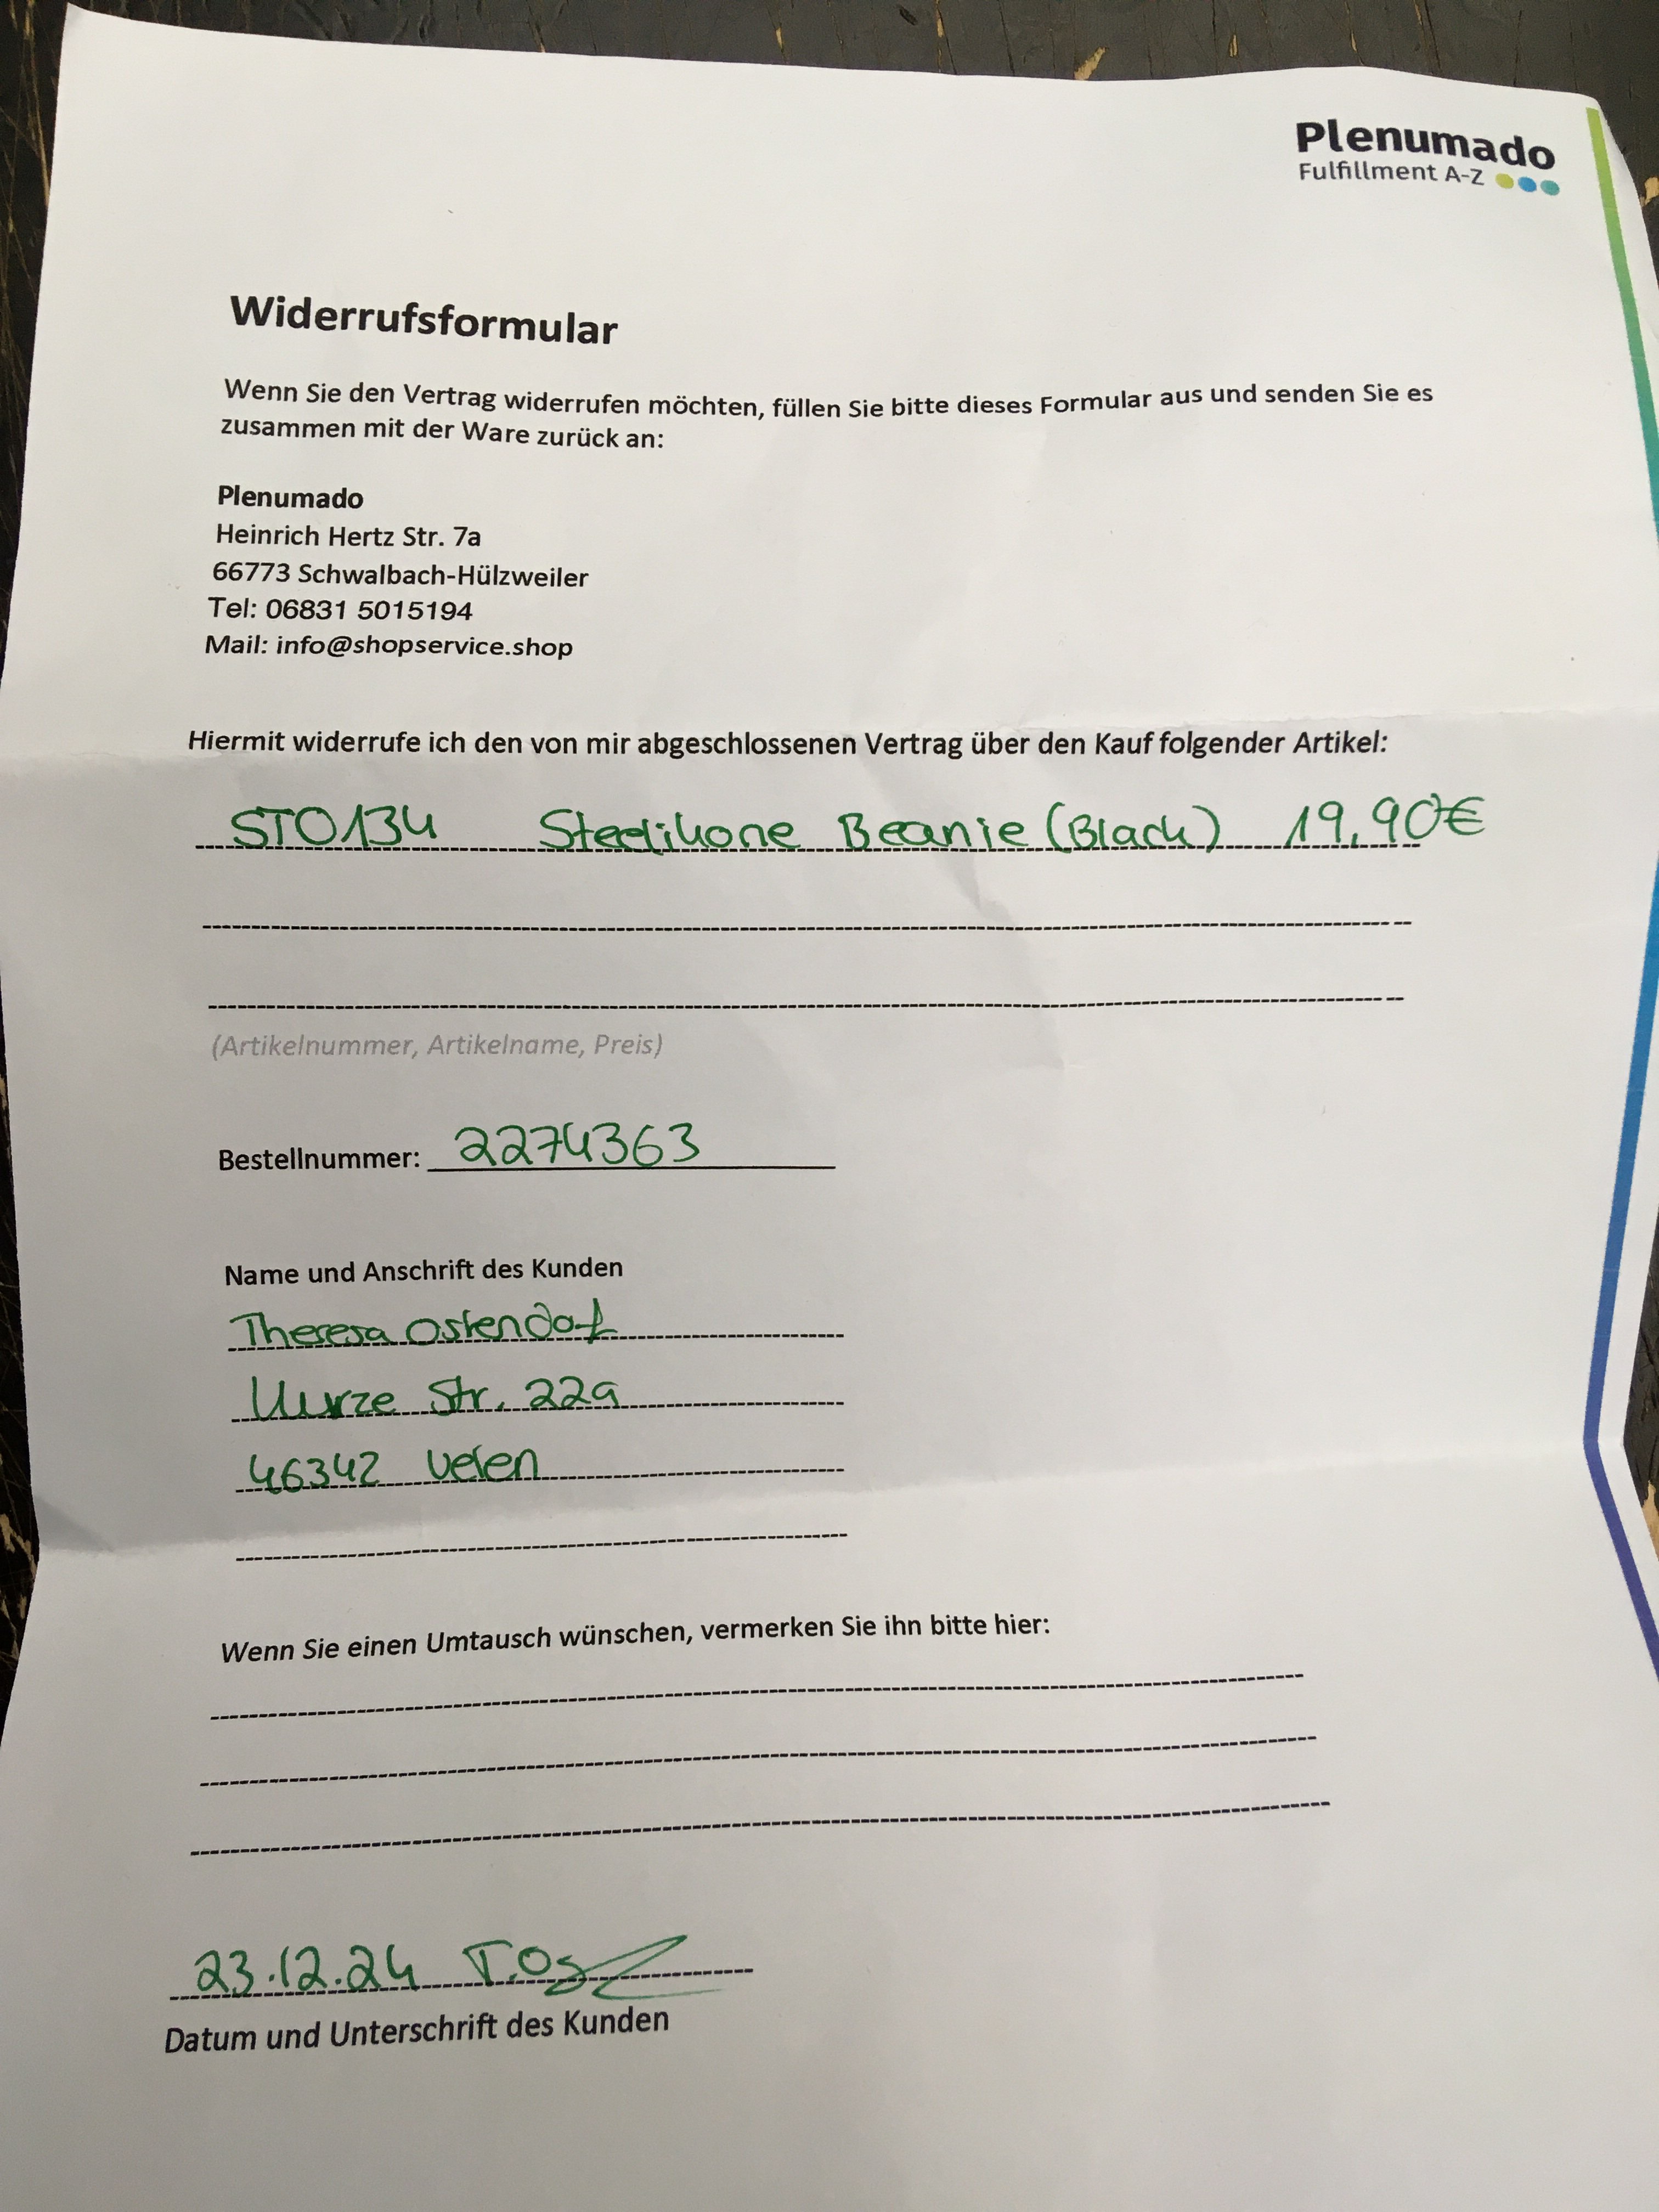 Plenumado
Fulfillment A-Z
Widerrufsformular
Wenn Sie den Vertrag widerrufen möchten, füllen Sie bitte dieses Formular aus und senden Sie es
zusammen mit der Ware zurück an:
Plenumado
Heinrich Hertz Str. 7a
66773 Schwalbach-Hülzweiler
Tel: 06831 5015194
Mail: info@shopservice.shop
Hiermit widerrufe ich den von mir abgeschlossenen Vertrag über den Kauf folgender Artikel:
STO134 Beanie (Black) 19,90€
(Artikelnummer, Artikelname, Preis)
Bestellnummer: 2274363
Name und Anschrift des Kunden
Theresa Ostendorf
Kurze Str. 22a
46342 Velen
Wenn Sie einen Umtausch wünschen, vermerken Sie ihn bitte hier:
23.12.24 T.Os
Datum und Unterschrift des Kunden